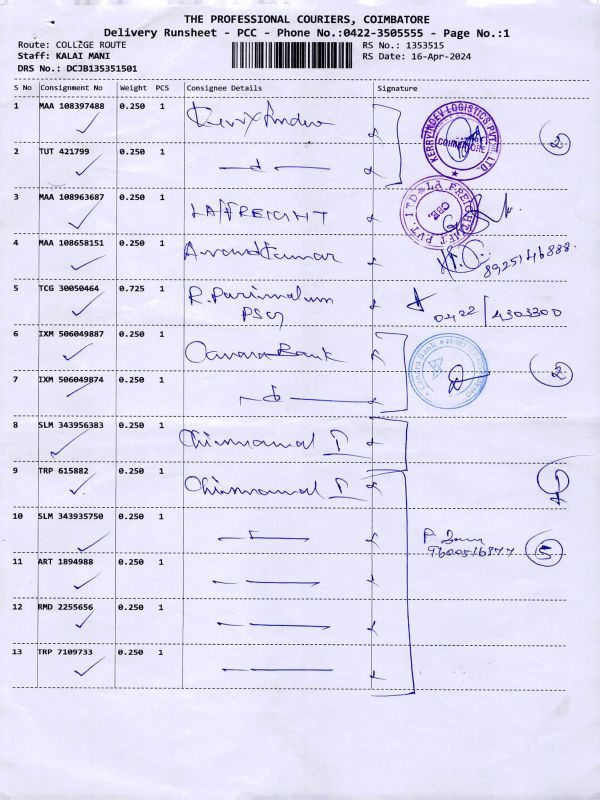 THE PROFESSIONAL COURIERS, COIMBATORE
Delivery Runsheet - PCC - Phone No.:0422-3505555 - Page No.:1
Route: COLLEGE ROUTE
RS No.: 1353515
Staff: KALAI MANI
RS Date: 16-Apr-2024
DRS No.: DCJB135351501
S No Consignment No Weight PCS Consignee Details Signature
1 MAA 108397488 0.250 1 KERRYINDEV LOGISTICS PVT. LTD. COIMBATORE 2
2 TUT 421799 0.250 1
3 MAA 108963687 0.250 1 LA/FREIGHT LA FREIGHTLIFT PVT. LTD CBE.
4 MAA 108658151 0.250 1 Aravindkumar 8925146888.
5 TCG 30050464 0.725 1 R. Parimalam
PSG 0422 / 4303300
6 IXM 506049887 0.250 1 Canara Bank Canara Bank 2
7 IXM 506049874 0.250 1
8 SLM 343956383 0.250 1 Chinnamal I
9 TRP 615882 0.250 1 Chinnamal I 1
10 SLM 343935750 0.250 1 P.
9600516877 5
11 ART 1894988 0.250 1
12 RMD 2255656 0.250 1
13 TRP 7109733 0.250 1